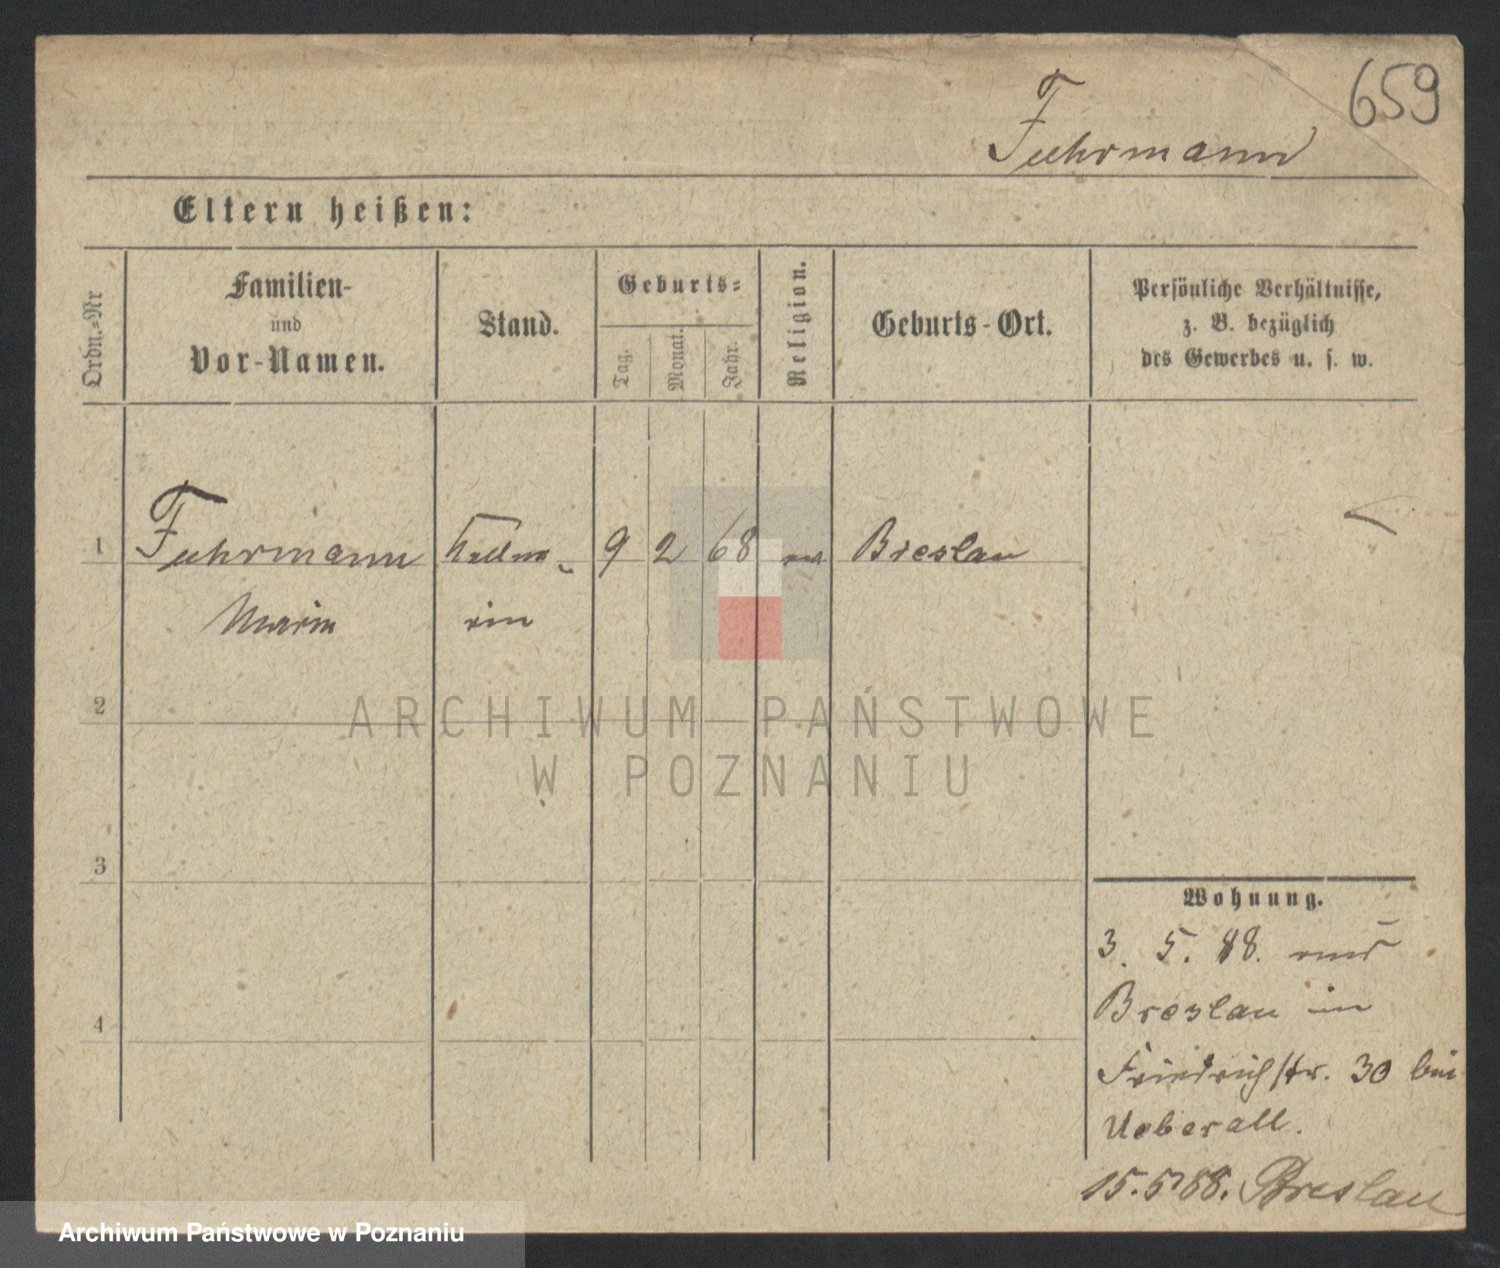 659
Fuhrmann
Eltern heißen:
Ordn.-Nr
Familien-
und
Vor-Namen.
Stand.
Geburts-
Tag.
Monat.
Jahr.
Religion.
Geburts-Ort.
Persönliche Verhältnisse,
z. B. bezüglich
des Gewerbes u. s. w.
1 Fuhrmann Kellne- 9 2 68 Breslau
Marie rin
2
3
4
ARCHIWUM PAŃSTWOWE
W POZNANIU
Wohnung.
3. 5. 88. aus
Breslau in
Friedrichstr. 30 bei
Ueberall.
15. 5. 88. Breslau
Archiwum Państwowe w Poznaniu